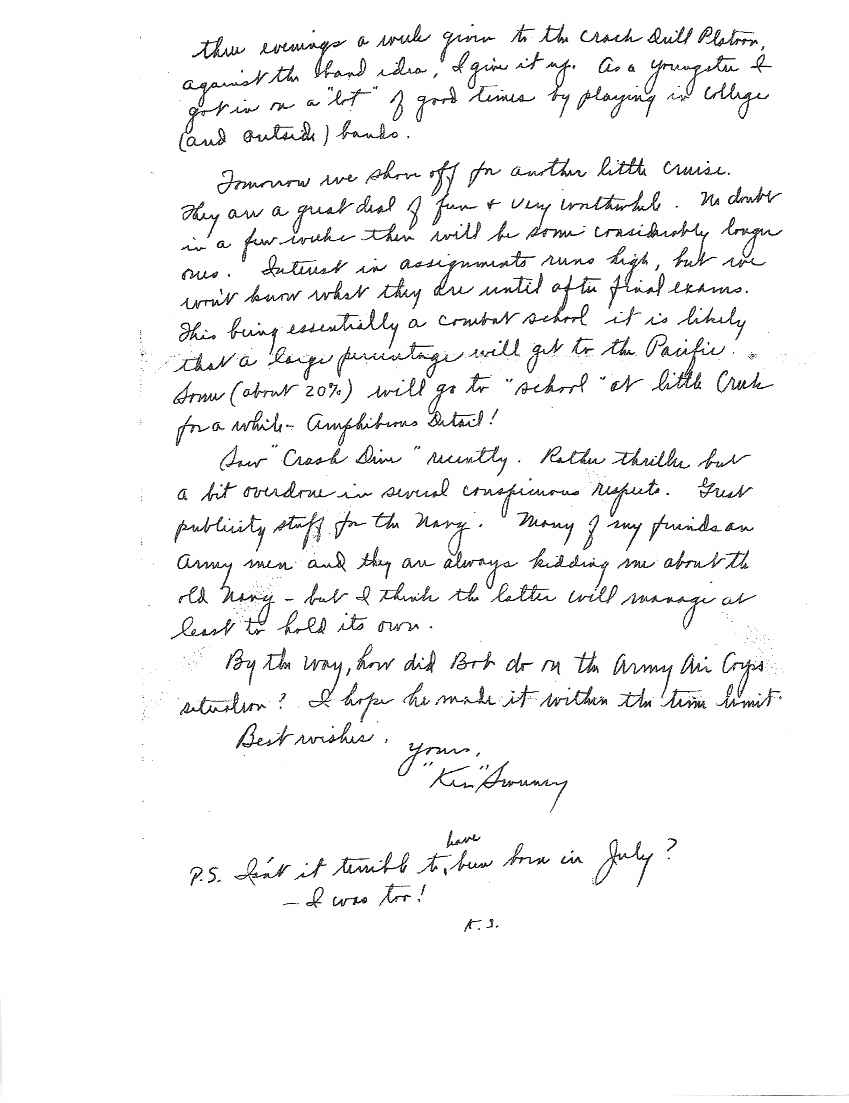 three evenings a week given to the Crack Drill Platoon,
against the band idea, I give it up. As a youngster I
got in on a "lot" of good times by playing in college
(and outside) bands.
Tomorrow we shove off for another little cruise.
They are a great deal of fun & very worthwhile. No doubt
in a few weeks there will be some considerably longer
ones. Interest in assignments runs high, but we
won't know what they are until after final exams.
This being essentially a combat school it is likely
that a large percentage will get to the Pacific.
Some (about 20%) will go to "school" at little Creek
for a while - Amphibious Detail!
Saw "Crash Dive" recently. Rather thriller but
a bit overdone in several conspicuous respects. Great
publicity stuff for the Navy. Many of my friends are
Army men and they are always kidding me about the
old Navy - but I think the latter will manage at
least to hold its own.
By the way, how did Bob do on the Army Air Corps
situation? I hope he made it within the time limit.
Best wishes.
Yours,
"Ken" Sweeney
have
P.S. Isn't it terrible to, been born in July?
- I was too!
K.S.